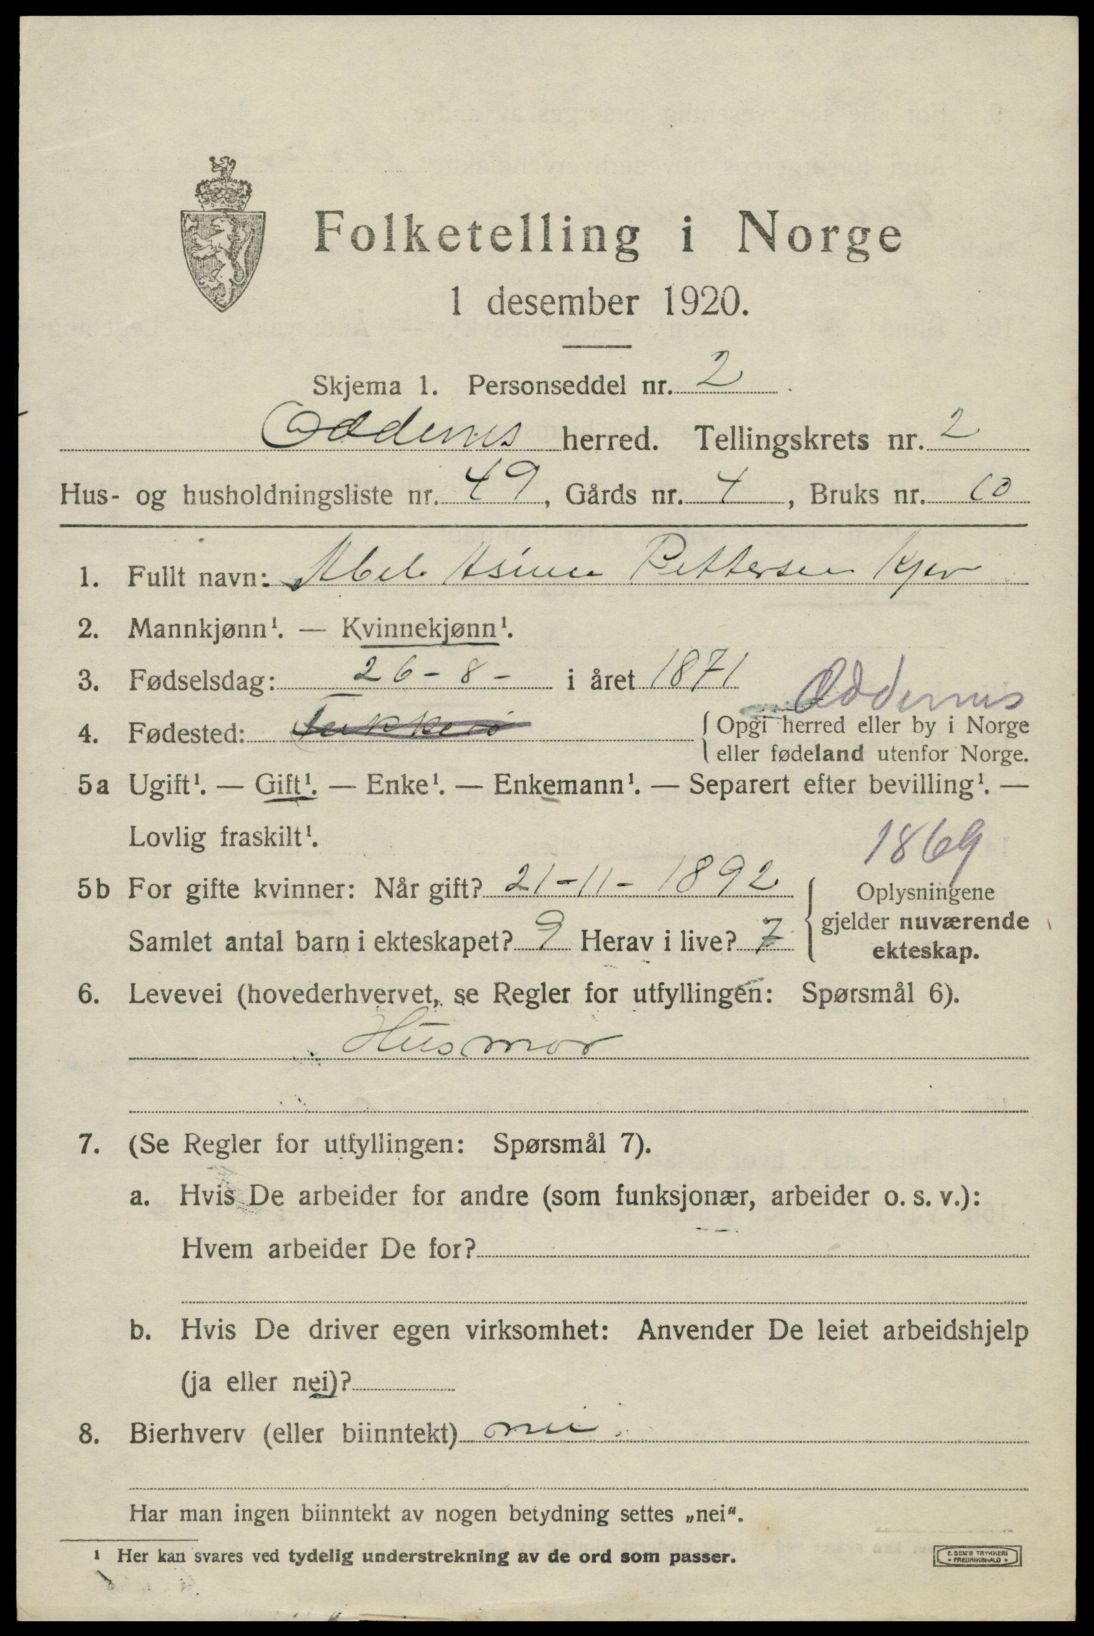 Folketelling i Norge
1 desember 1920.
Skjema 1. Personseddel nr. 2
Oddernes herred. Tellingskrets nr. 2
Hus- og husholdningsliste nr. 49, Gårds nr. 4, Bruks nr. 10
1. Fullt navn: Abel Asine Pettersen Kjev
2. Mannkjønn¹. — Kvinnekjønn¹.
3. Fødselsdag: 26-8- i året 1871
Oddernes
4. Fødested: { Opgi herred eller by i Norge
eller fødeland utenfor Norge.
5a Ugift¹. — Gift¹. — Enke¹. — Enkemann¹. — Separert efter bevilling¹. —
Lovlig fraskilt¹.
1869
5b For gifte kvinner: Når gift? 21-11- 1892 { Oplysningene
Samlet antal barn i ekteskapet? 9 Herav i live? 7 gjelder nuværende
ekteskap.
6. Levevei (hovederhvervet, se Regler for utfyllingen: Spørsmål 6).
Husmor
7. (Se Regler for utfyllingen: Spørsmål 7).
a. Hvis De arbeider for andre (som funksjonær, arbeider o. s. v.):
Hvem arbeider De for?
b. Hvis De driver egen virksomhet: Anvender De leiet arbeidshjelp
(ja eller nei)?
8. Bierhverv (eller biinntekt) nei.
Har man ingen biinntekt av nogen betydning settes „nei“.
¹ Her kan svares ved tydelig understrekning av de ord som passer.
E. SEM'S TRYKKERI
• FREDRIKSHALD •